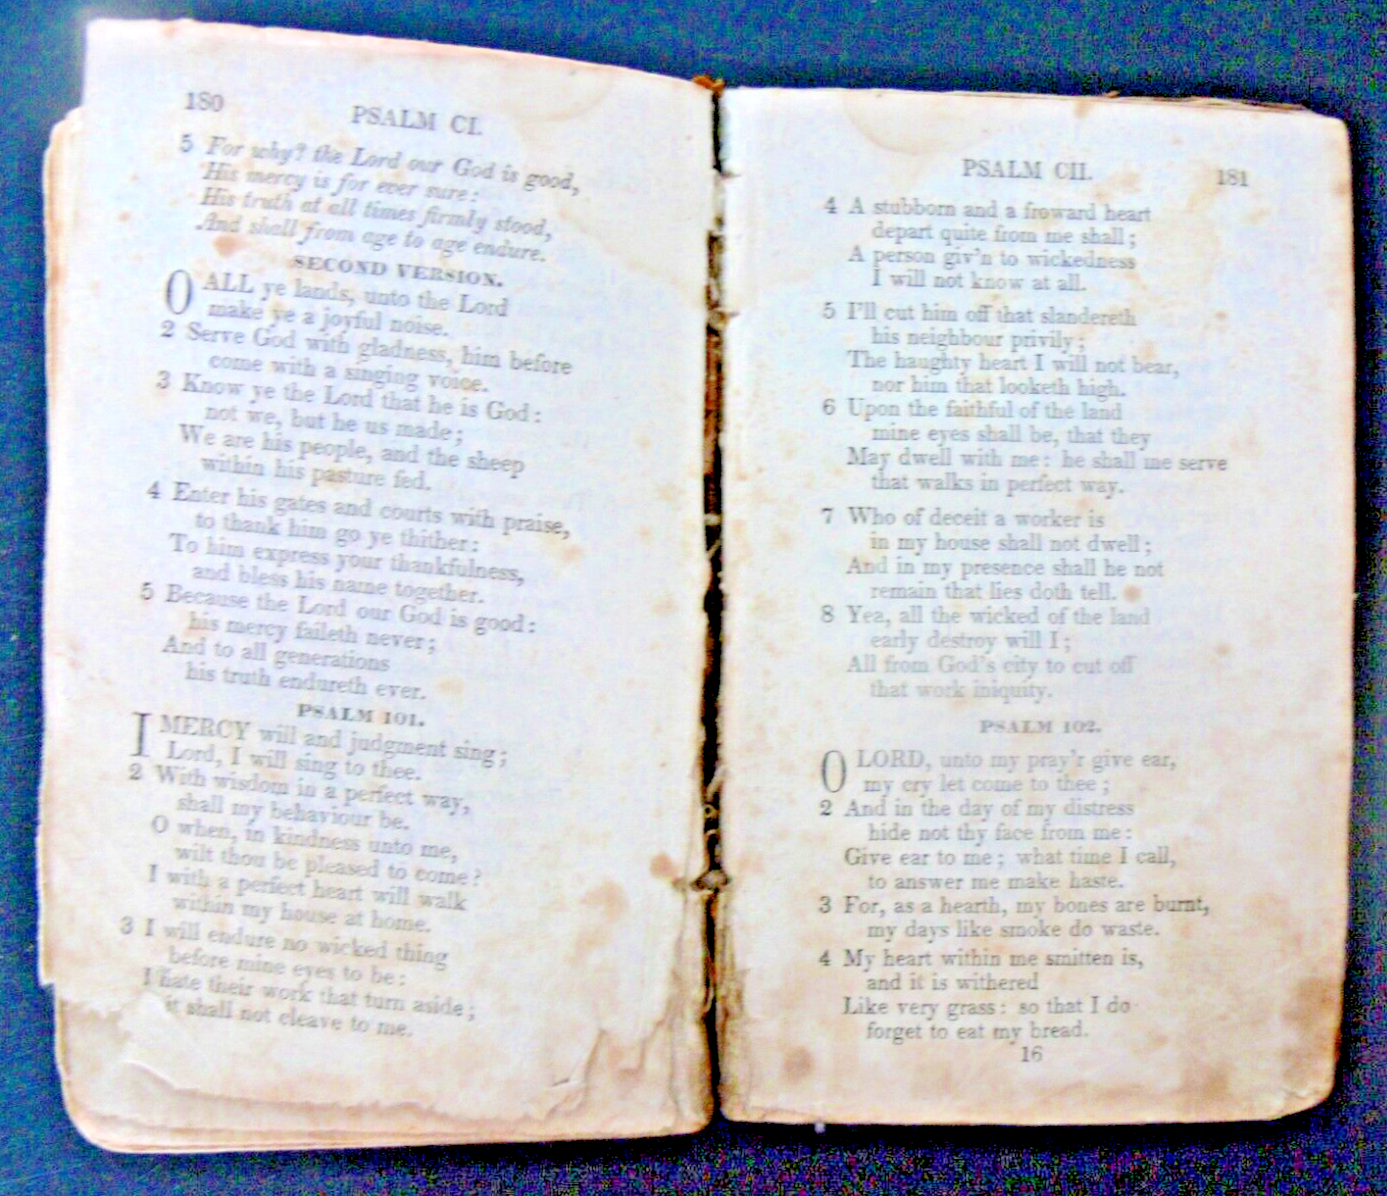 180
PSALM CI.
5 For why? the Lord our God is good,
His mercy is for ever sure:
His truth at all times firmly stood,
And shall from age to age endure.
SECOND VERSION.
O ALL ye lands, unto the Lord
make ye a joyful noise.
2 Serve God with gladness, him before
come with a singing voice.
3 Know ye the Lord that he is God:
not we, but he us made;
We are his people, and the sheep
within his pasture fed.
4 Enter his gates and courts with praise,
to thank him go ye thither:
To him express your thankfulness,
and bless his name together.
5 Because the Lord our God is good:
his mercy faileth never;
And to all generations
his truth endureth ever.
PSALM 101.
I MERCY will and judgment sing;
Lord, I will sing to thee.
2 With wisdom in a perfect way,
shall my behaviour be.
O when, in kindness unto me,
wilt thou be pleased to come?
I with a perfect heart will walk
within my house at home.
3 I will endure no wicked thing
before mine eyes to be:
I hate their work that turn aside;
it shall not cleave to me.
PSALM CII.
181
4 A stubborn and a froward heart
depart quite from me shall;
A person giv'n to wickedness
I will not know at all.
5 I'll cut him off that slandereth
his neighbour privily;
The haughty heart I will not bear,
nor him that looketh high.
6 Upon the faithful of the land
mine eyes shall be, that they
May dwell with me: he shall me serve
that walks in perfect way.
7 Who of deceit a worker is
in my house shall not dwell;
And in my presence shall he not
remain that lies doth tell.
8 Yea, all the wicked of the land
early destroy will I;
All from God's city to cut off
that work iniquity.
PSALM 102.
O LORD, unto my pray'r give ear,
my cry let come to thee;
2 And in the day of my distress
hide not thy face from me:
Give ear to me; what time I call,
to answer me make haste.
3 For, as a hearth, my bones are burnt,
my days like smoke do waste.
4 My heart within me smitten is,
and it is withered
Like very grass: so that I do
forget to eat my bread.
16